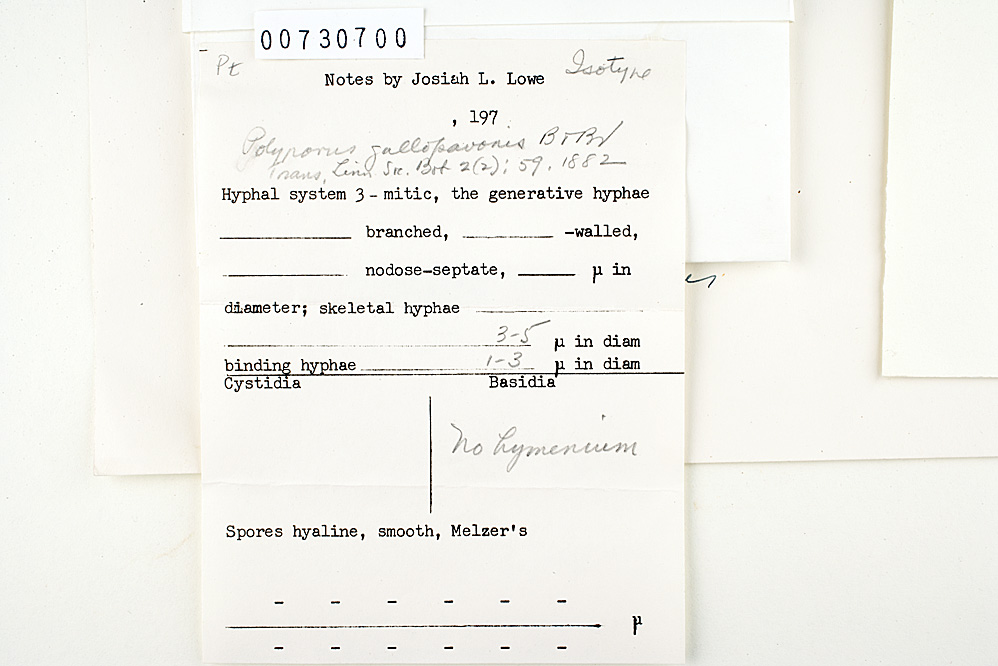 00730700
Pt
Isotype
Notes by Josiah L. Lowe
, 197
Polyporus gallopavonis B & Br
Trans. Linn Soc. Bot 2(2): 59. 1882
Hyphal system 3-mitic, the generative hyphae
branched, -walled,
nodose-septate, μ in
diameter; skeletal hyphae
3-5 μ in diam
binding hyphae 1-3 μ in diam
Cystidia Basidia
No hymenium
Spores hyaline, smooth, Melzer's
- - - - - -
μ
- - - - - -